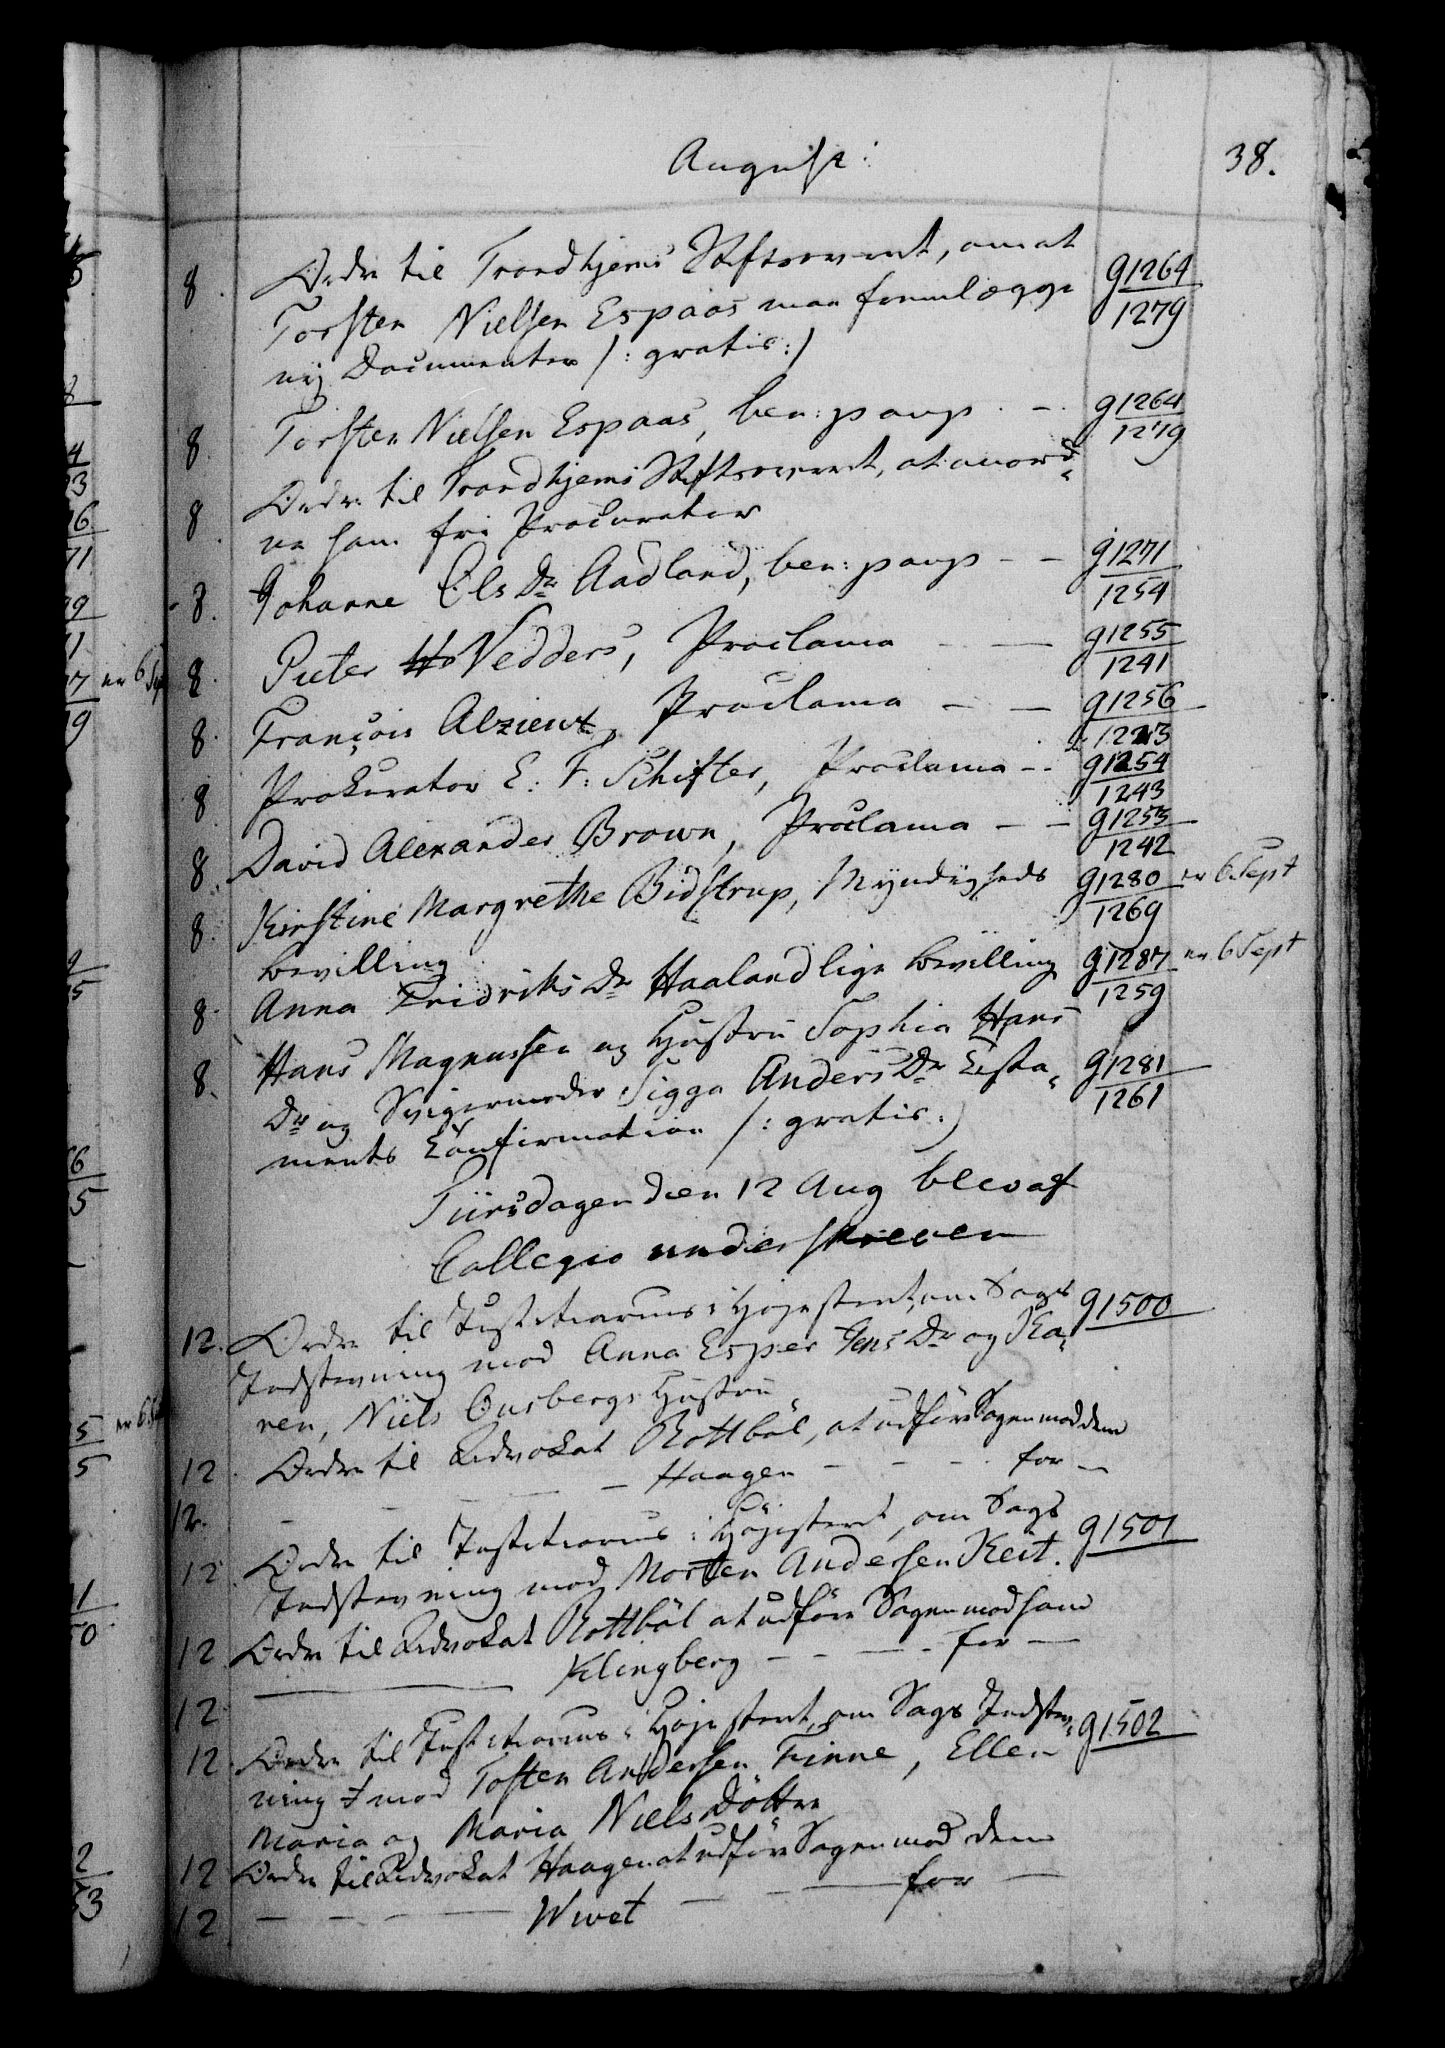 August:
38.
8. Ordre til Trondhjems Stiftsoverret, om at
Torsten Nielsen Espaas maa fremlægge g1264/1279
nye Documenter /: gratis :/
8. Torsten Nielsen Espaas, ben: paup. - g1264/1279
8. Ordre til Trondhjems Stiftsoverret, at anord„
ne ham fri Procurator
8. Johanne Ols Dr. Aadland, ben: paup - - g1271/1254
8. Pieter Vedders, Proclama - — g1255/1241
8. François Alzieux, Proclama - — g1256/1223
8. Prokurator E. F. Schifter, Proclama - - g1254/1243
8. David Alexander Brown, Proclama - — g1253/1242
8. Kirstine Margrethe Bidstrup, Myndigheds g1280/1269 er 6 Sept
bevilling
8. Anna Fridriks Dr. Haaland lige bevilling g1287/1259 er 6 Sept
8. Hans Magnussen og Hustru Sophia Hans
Dr. og Svigermoder Sigga Anders Dr. Testa„ g1281/1261
ments Confirmation /: gratis :/
Tiirsdagen den 12 Aug blev af
Collegio underskreven
12. Ordre til Justitiarius i Højesteret, om Sags g1500
Indstevning mod Anna Esper Jens Dr. og Ka„
ren, Niels Ousbergs Hustru
12. Ordre til Advokat Rottböl, at udföre Sagen mod dem
12. — — — Haagen — — — for —
12. Ordre til Justitiarius i Højesteret, om Sags g1501
Indstevning mod Morten Andersen Keit.
12 Ordre til Advokat Rottböl at udföre Sagen mod ham
12 — Klingberg - - — - for —
12. Ordre til Justitiarius i Højesteret, om Sags Indstev„ g1502
ning mod Tosten Andersen Finne, Ellen
Maria og Maria Niels Döttre
12 Ordre til Advokat Haagen at udföre Sagen mod dem
12 — — — Wivet — — — for —